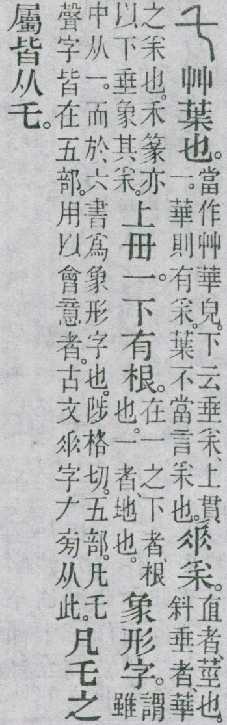 乇艸葉也。當作艸華皃。下云垂采、上貫一。華則有采。葉不當言采也。𠂹采。直者莖也。斜垂者華
之采也。禾篆亦以下垂象其采。上毌一。下有根。在一之下者、根也。一者、地也。象形字。謂雖
中从一。而於六書爲象形字也。陟格切。五部。凡乇聲字皆在五部。用以會意者。古文𠂹字𠂇旁从此。凡乇之
屬皆从乇。